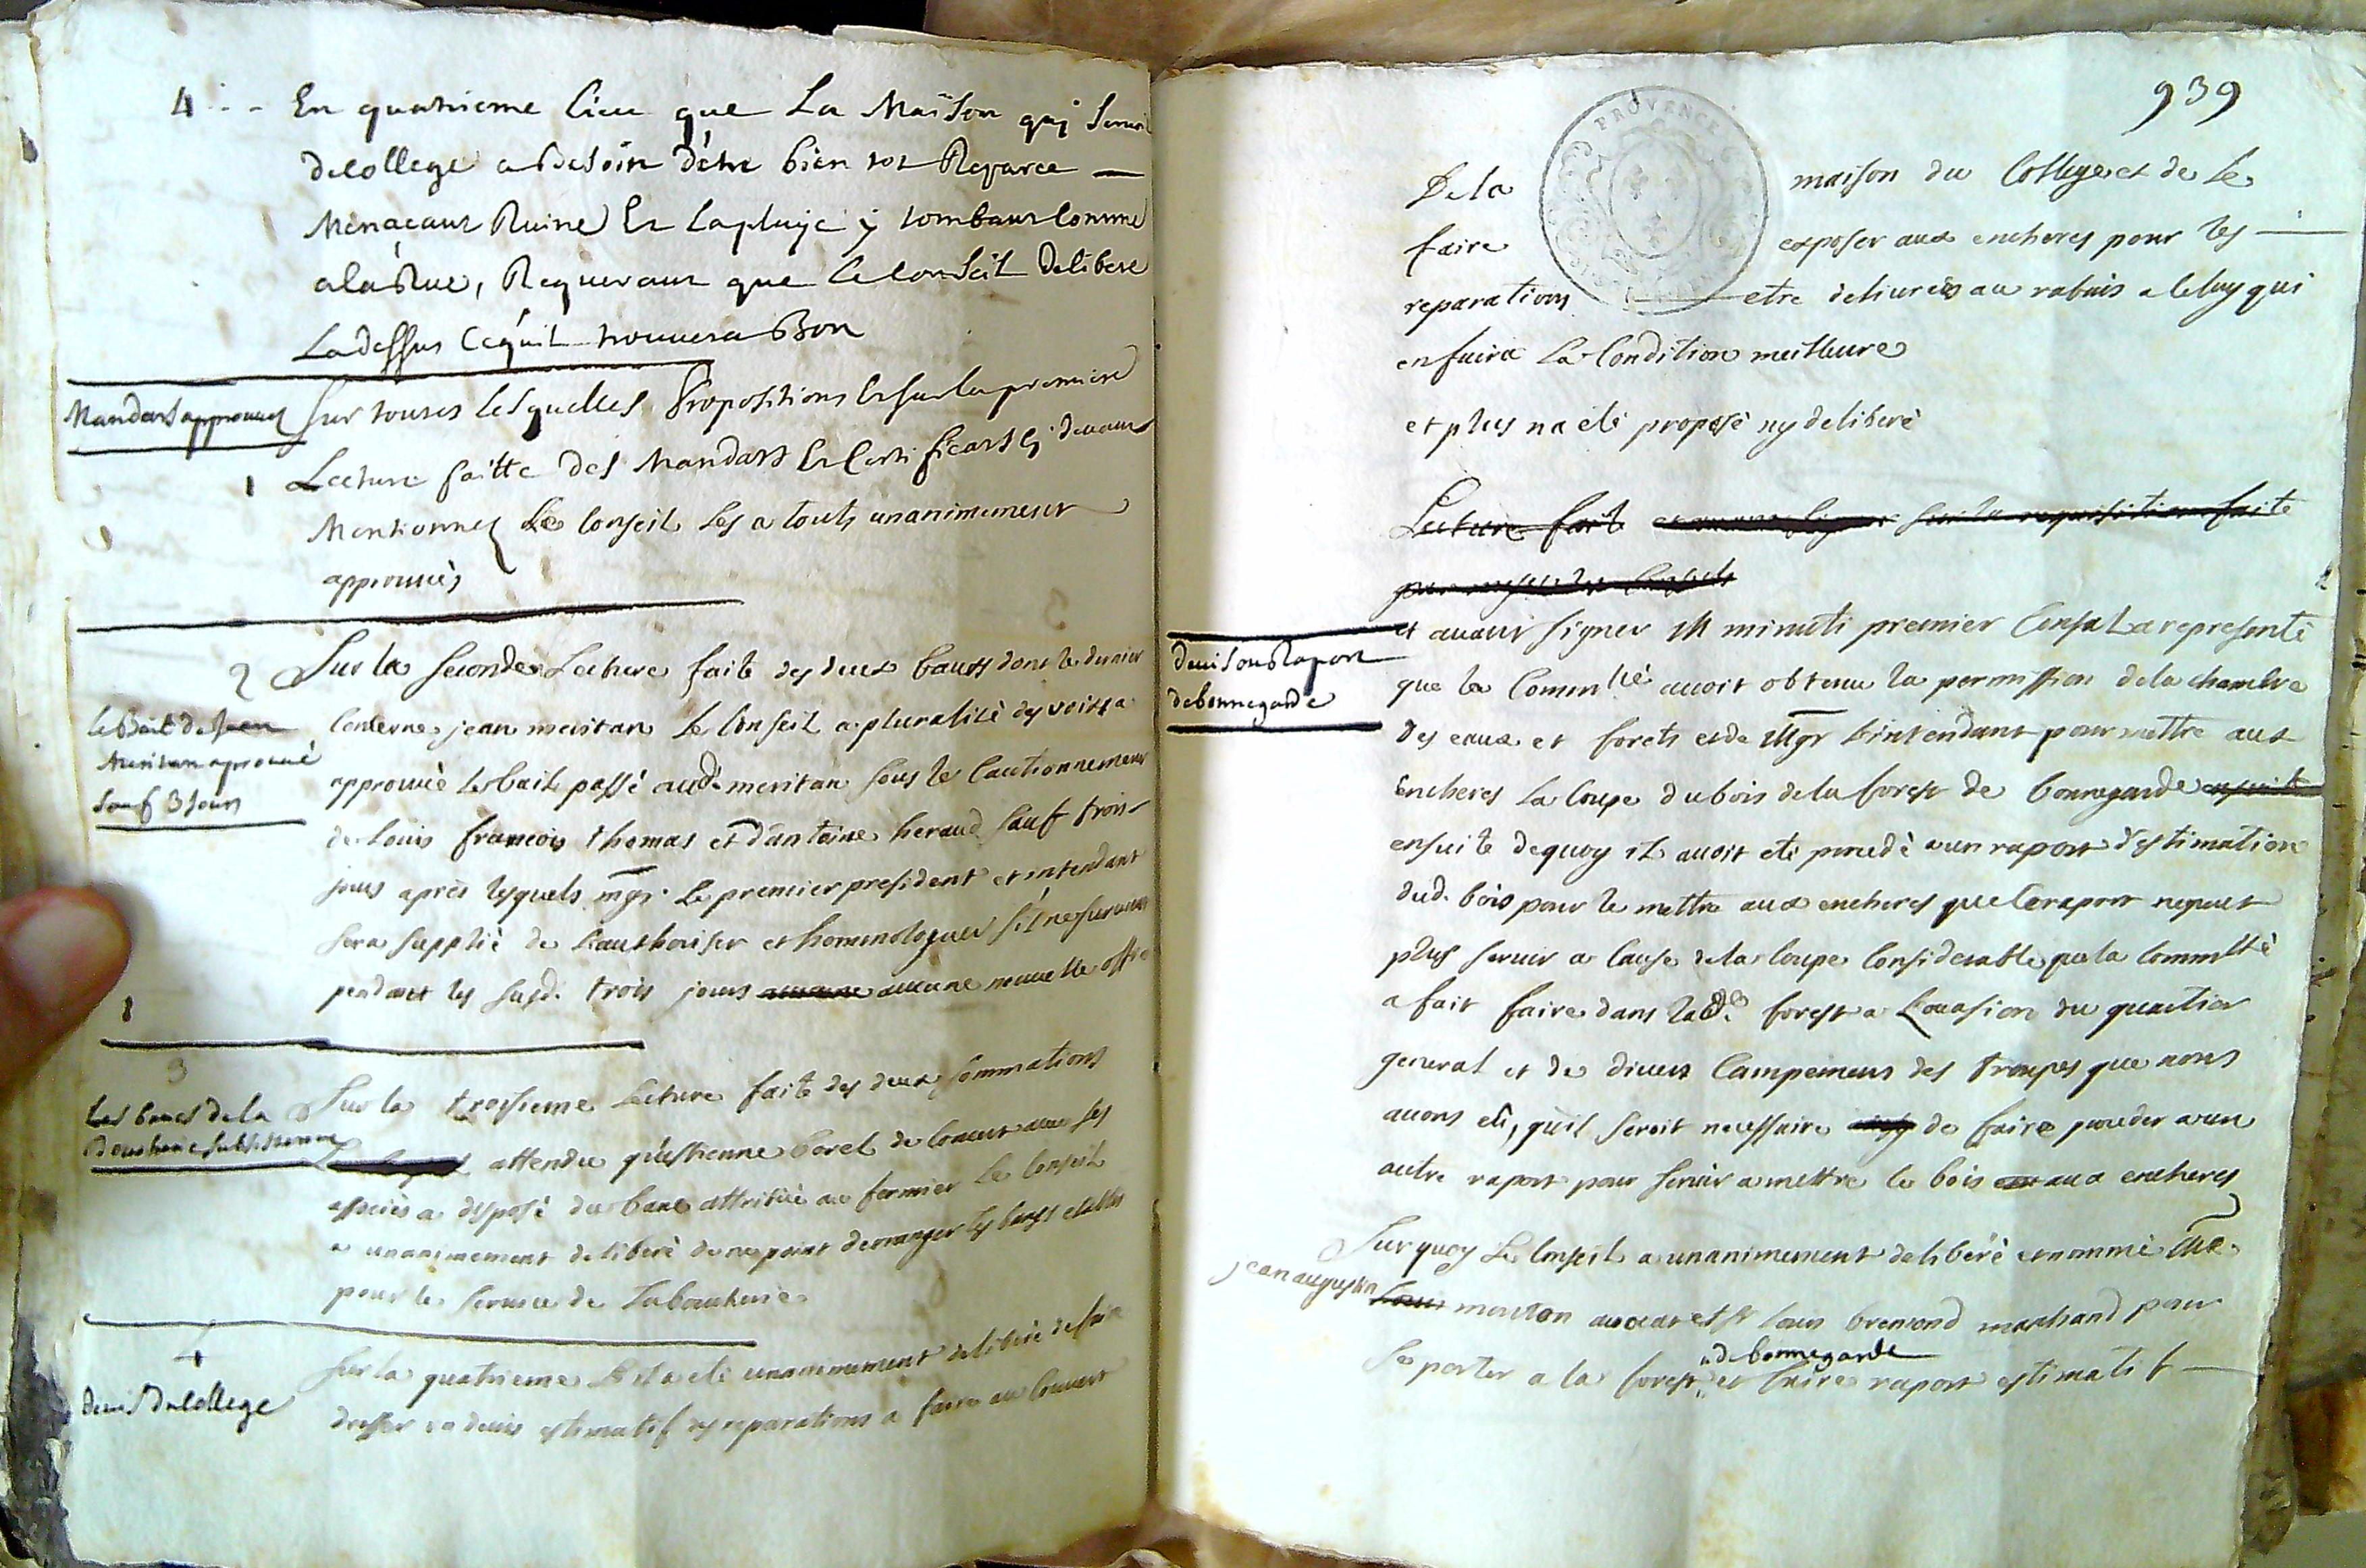 4 -- En quatrieme lieu que La Maison quj Servoit
de college a Besoin d'étre bien tot Reparee —
Menacant Ruine Et la pluÿe ÿ tombant comme
a la Rue, Requerant que le Conseil delibere
La dessus Ce qu'il trouvera Bon
Mandats approuvez
Sur toutes Lesquelles Propositions Et sur la premiere
1 Lecture faitte des Mandats Et Certificats cj devant
Mentionnez Le conseil les a touts unanimement
approuvès
2 Sur la seconde Lecture faite des deux baux dont le dernier
le Bail de Jean
Meritan aprouvé
Sauf 3 Jours
concerne jean meritan Le Conseil a pluralité des voix a
approuvé le bail passé aud. meritan sous le Cautionnement
de louis francois thomas et d'antoine heraud sauf trois
jours après lesquels mgr. Le premier president et intendant
sera supplié de L'authoriser et homologuer s'il ne survient
pendant les susd. trois jours aucune nouvelle offre
3
Les bancs de la
Boucherie subsisteront
Sur la troisieme Lecture faite des deux sommations
attendu qu'estienne borel de concert avec ses
associés a disposé du banc attribué au fermier Le Conseil
a unanimement deliberé de ne point deranger les bancs etablis
pour le service de la boucherie
4
devis du college
Sur la quatrieme Il a eté unanimement deliberé de faire
dresser un devis estimatif des reparations a faire au couvert
939
PROVENCE
De la maison du College et de le
faire exposer aux encheres pour les —
reparations etre delivrées au rabais a celuy qui
en faira la Condition meilleure
et plus n'a eté proposé ny deliberé
Lecture faite sur la requisition faite
devis ou Raport
de bonnegarde
et avant signer M minuti premier Consul a representé
que la Comm.té avoit obtenu la permission de la chambre
des eaux et forets et de Mgr L'intendant pour mettre aux
encheres la Coupe du bois de la forest de bonnegarde ensuite
ensuite dequoy il avoit eté procedé a un raport d'estimation
dud. bois pour le mettre aux encheres que Ce raport ne peut
plus servir a Cause de la Coupe Considerable que la Comm.té
a fait faire dans lad. forest a L'occasion du quartier
general et de divers Campemens des troupes que nous
avons eu, qu'il seroit necessaire de faire proceder a un
autre raport pour servir a mettre le bois aux encheres
Sur quoy Le Conseil a unanimement deliberé et nommé Me.
jean augustin mouton avocat et sr louis bremond marchand pour
se porter a la forest de bonnegarde et faire raport estimatif —